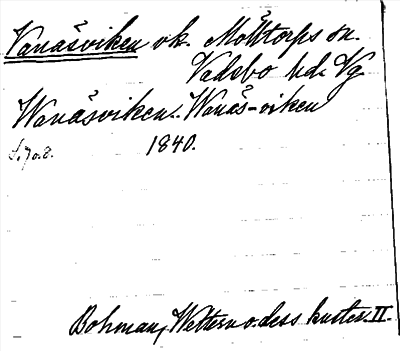 Vanäsviken vk. Mölltorps sn.
Vadsbo hd. Vg
Wanäsviken.. Wanäs-viken
S. 7 o. 8. 1840.
Bohman, Wettern o. dess kuster. II.